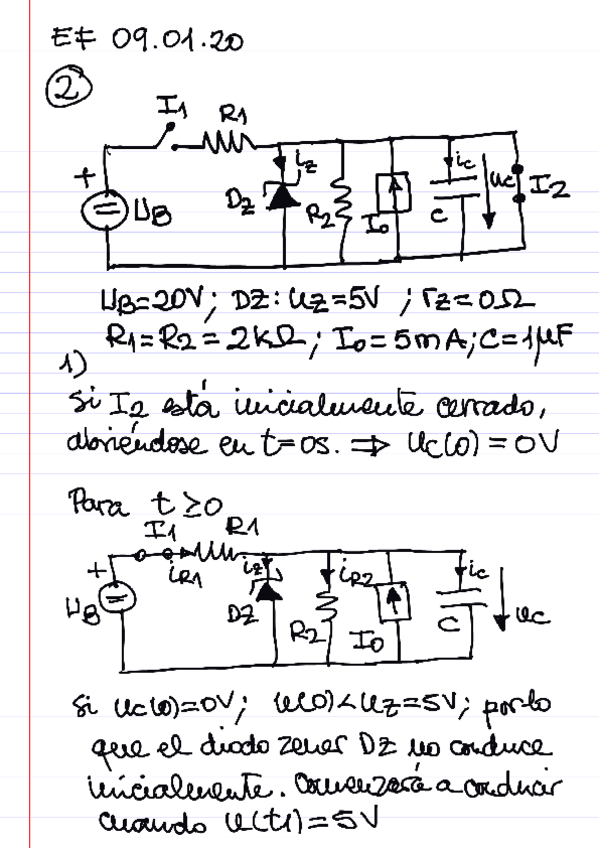 EF 09.01.20
2
I1
R1
+
UB
DZ
iz
R2
Io
ic
C
uc
I2
UB=20V; DZ: UZ=5V; rZ=0Ω
R1=R2=2KΩ; Io=5mA; C=1μF
1)
Si I2 está inicialmente cerrado,
abriéndose en t=0s. ⇒ Uc(0)=0V
Para t≥0
I1
R1
+
iR1
UB
iz
DZ
iR2
R2
Io
ic
C
uc
Si uc(0)=0V; u(0)<UZ=5V; por lo
que el diodo zener DZ no conduce
inicialmente. Comenzará a conducir
cuando u(t1)=5V